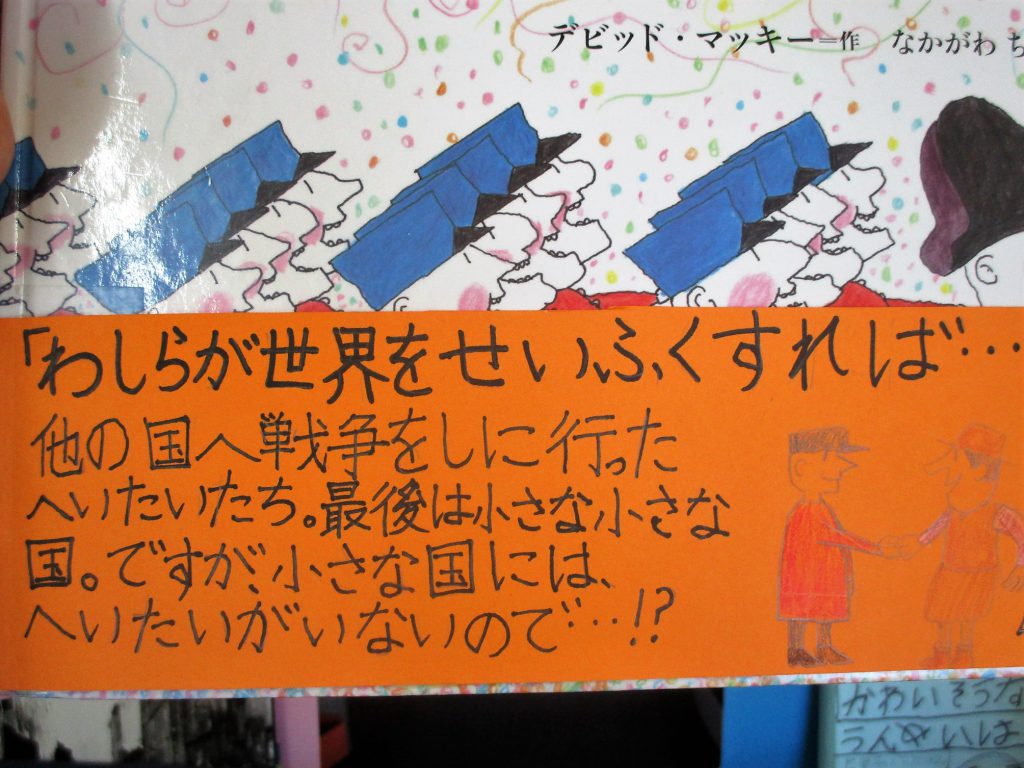 デビッド・マッキー=作 なかがわ ち
「わしらが世界をせいふくすれば…
他の国へ戦争をしに行った
へいたいたち。最後は小さな小さな
国。ですが、小さな国には、
へいたいがいないので…!?
かわいそうな